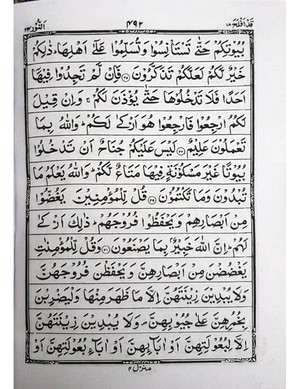 قد افلح ١٨ ٤٩٢ النور ٢٤
بُيُوْتِكُمْ حَتّٰى تَسْتَاْنِسُوْا وَتُسَلِّمُوْا عَلٰٓى اَهْلِهَا ؕ ذٰلِكُمْ
خَيْرٌ لَّكُمْ لَعَلَّكُمْ تَذَكَّرُوْنَ ۝ فَاِنْ لَّمْ تَجِدُوْا فِيْهَاۤ
اَحَدًا فَلَا تَدْخُلُوْهَا حَتّٰى يُؤْذَنَ لَكُمْ ۚ وَاِنْ قِيْلَ
لَكُمُ ارْجِعُوْا فَارْجِعُوْا هُوَ اَزْكٰى لَكُمْ ؕ وَاللّٰهُ بِمَا
تَعْمَلُوْنَ عَلِيْمٌ ۝ لَيْسَ عَلَيْكُمْ جُنَاحٌ اَنْ تَدْخُلُوْا
بُيُوْتًا غَيْرَ مَسْكُوْنَةٍ فِيْهَا مَتَاعٌ لَّكُمْ ؕ وَاللّٰهُ يَعْلَمُ مَا
تُبْدُوْنَ وَمَا تَكْتُمُوْنَ ۝ قُلْ لِّلْمُؤْمِنِيْنَ يَغُضُّوْا
مِنْ اَبْصَارِهِمْ وَيَحْفَظُوْا فُرُوْجَهُمْ ؕ ذٰلِكَ اَزْكٰى
لَهُمْ ؕ اِنَّ اللّٰهَ خَبِيْرٌۢ بِمَا يَصْنَعُوْنَ ۝ وَقُلْ لِّلْمُؤْمِنٰتِ
يَغْضُضْنَ مِنْ اَبْصَارِهِنَّ وَيَحْفَظْنَ فُرُوْجَهُنَّ
وَلَا يُبْدِيْنَ زِيْنَتَهُنَّ اِلَّا مَا ظَهَرَ مِنْهَا وَلْيَضْرِبْنَ
بِخُمُرِهِنَّ عَلٰى جُيُوْبِهِنَّ ۪ وَلَا يُبْدِيْنَ زِيْنَتَهُنَّ
اِلَّا لِبُعُوْلَتِهِنَّ اَوْ اٰبَآئِهِنَّ اَوْ اٰبَآءِ بُعُوْلَتِهِنَّ اَوْ
منزل ٤